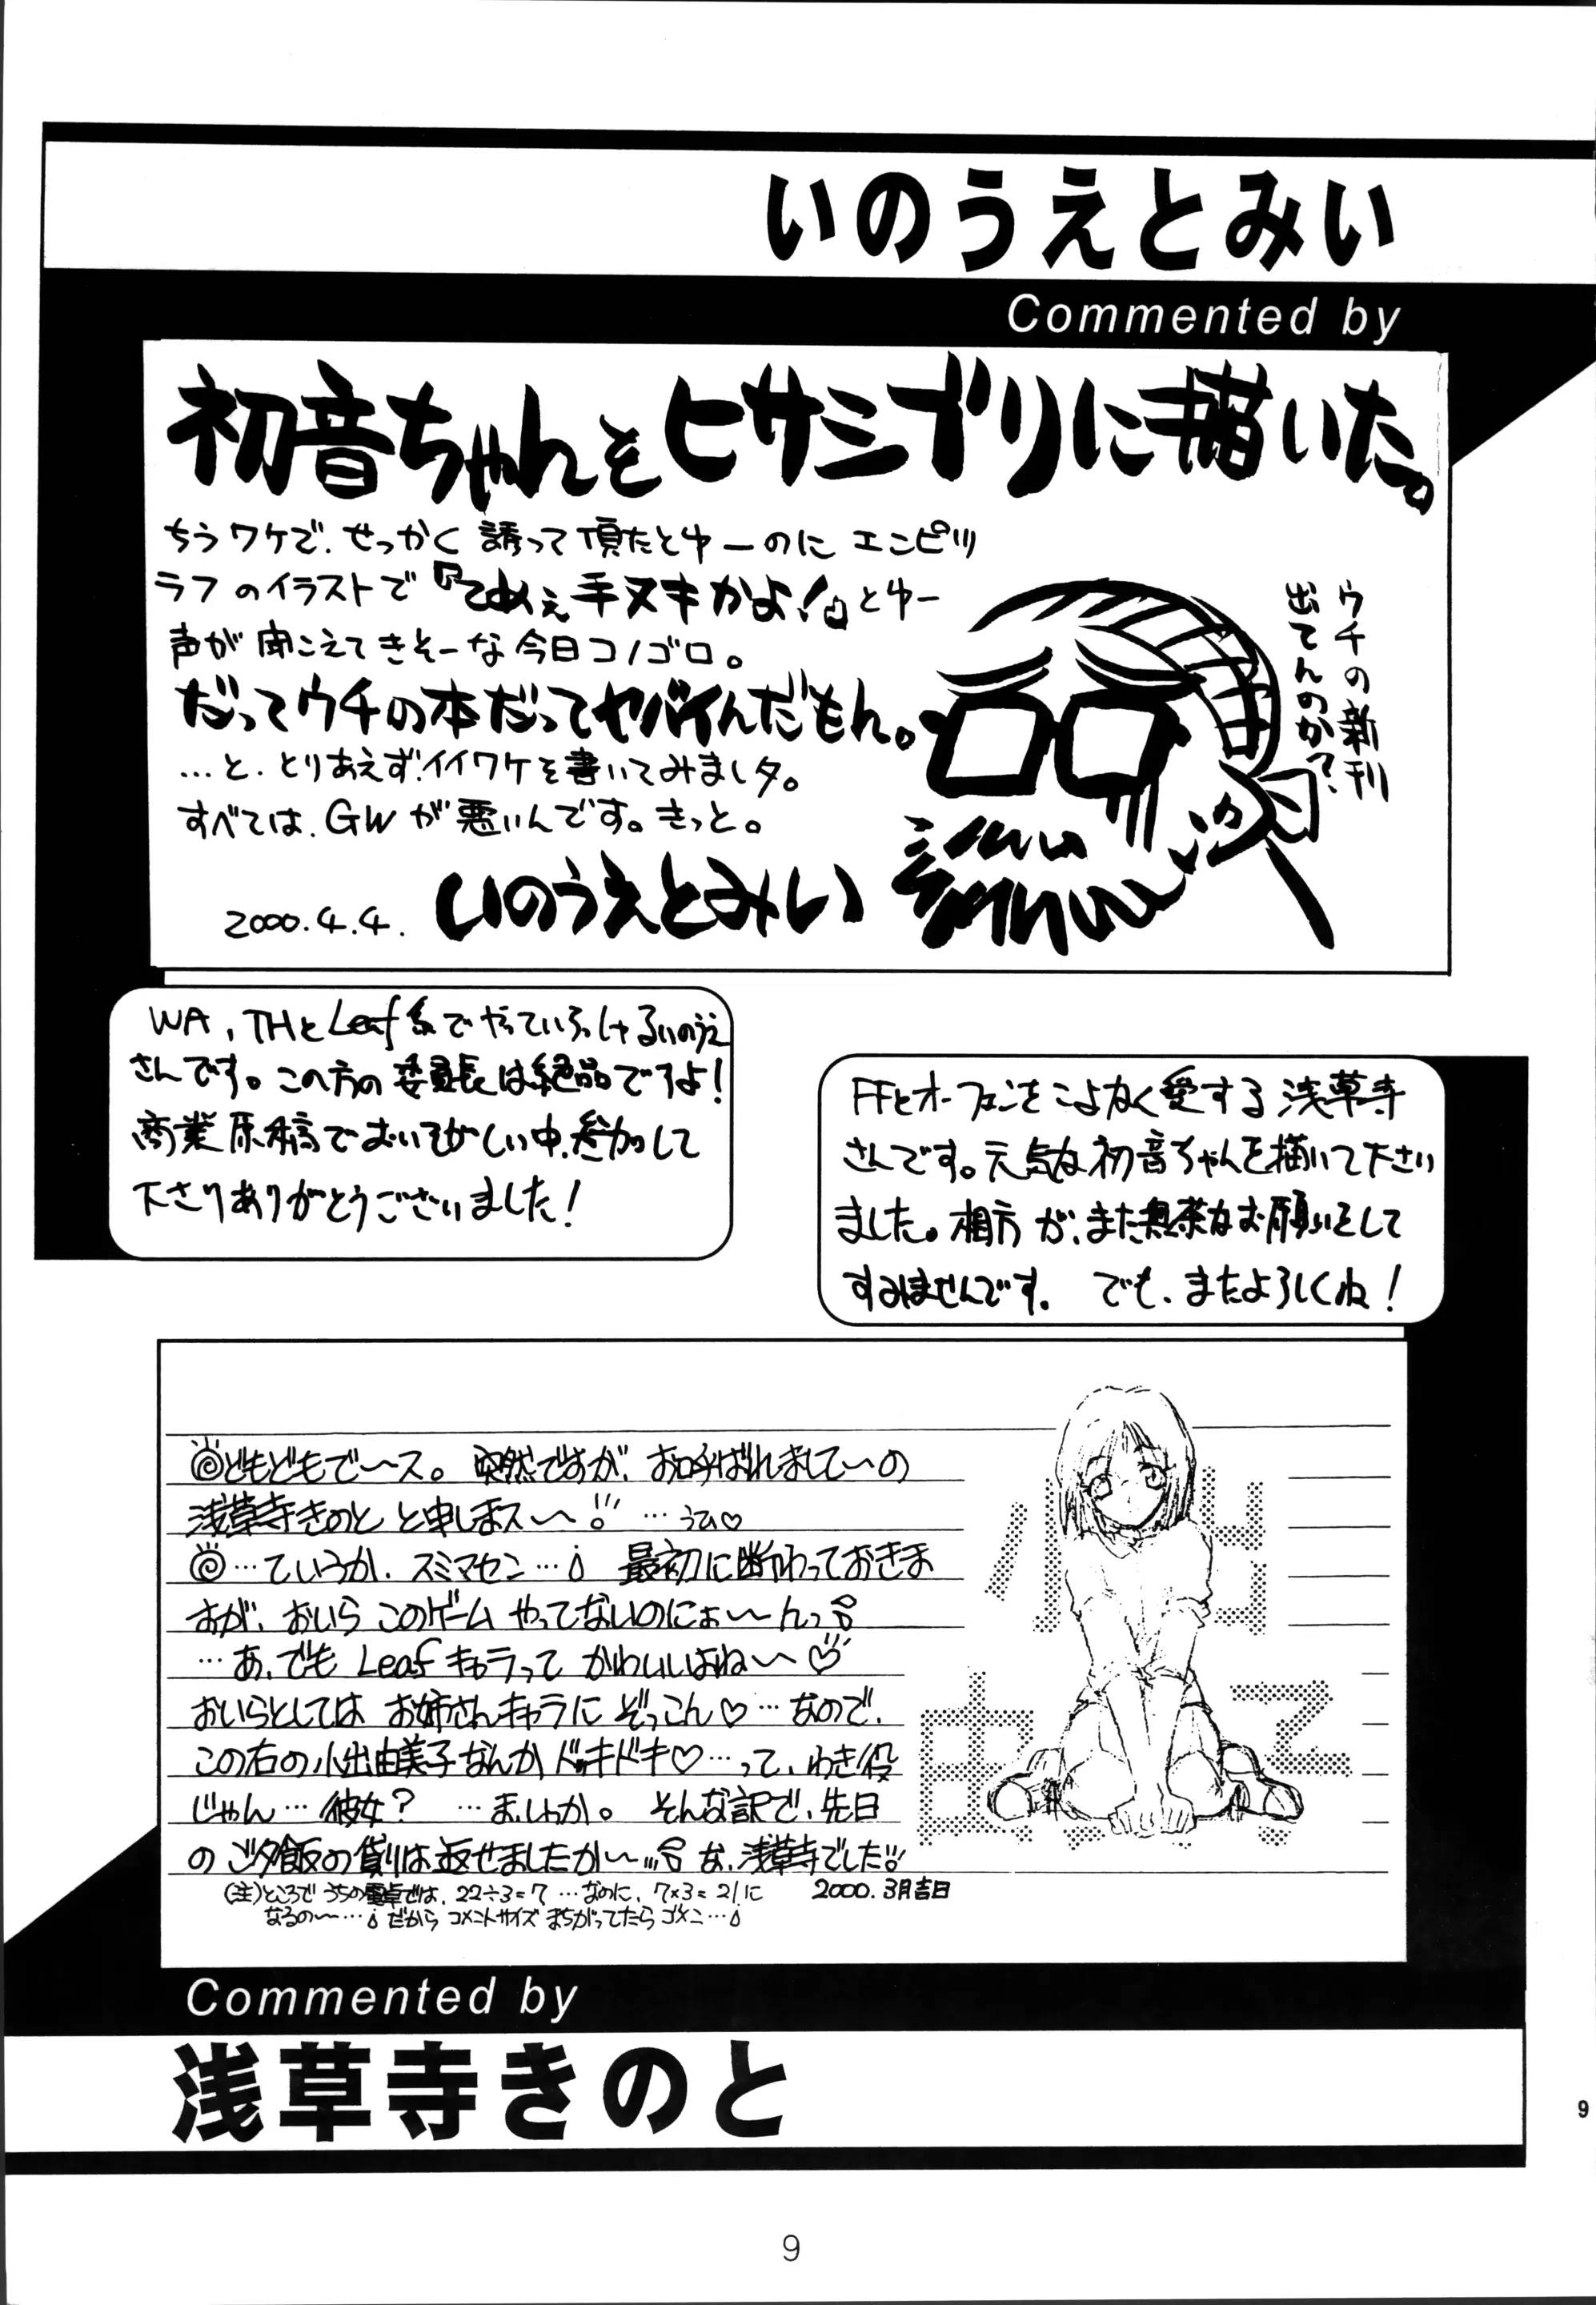 いのうえとみい
Commented by
初音ちゃんをヒサシブリに描いた。
ちうワケで、せっかく誘って頂たとゆーのにエンピツ
ラフのイラストで『てめぇ手ヌキかよ!』とゆー
声が聞こえてきそーな今日コノゴロ。
だってウチの本だってヤバイんだもん。
…と、とりあえずイイワケを書いてみましタ。
すべては、GWが悪いんです。きっと。
2000.4.4. いのうえとみい
ウチの新刊
出てんのか?
WA,THとLeaf系でやっていらっしゃるいのうえ
さんです。この方の委員長は絶品ですよ!
商業原稿でおいそがしい中、参加して
下さりありがとうございました!
FFとオーフェンをこよなく愛する浅草寺
さんです。元気な初音ちゃんを描いて下さい
ました。相方が、また無茶なお願いをして
すみませんです。 でも、またよろしくね!
どもどもで〜ス。突然ですが、お呼ばれしまして〜の
浅草寺きのとと申しまス〜!! …うひ♡
…ていうか、スミマセン… 最初に断わっておきま
すが、おいらこのゲームやってないのにょ〜んっ
…あ、でもLeafキャラってかわいいよね〜♡
おいらとしてはお姉さんキャラにぞっこん♡…なので、
この右の小出由美子なんかドッキドキ♡…って、わき役
じゃん…彼女? …ま、いっか。 そんな訳で、先日
のご夕飯の貸りは返せましたか〜… な、浅草寺でした!!
(注)ところでうちの電卓では、22÷3=7 …なのに、7×3=21に
なるの〜… だからコメントサイズまちがってたらゴメン…
2000.3月吉日
小出
由美子
Commented by
浅草寺きのと
9
9